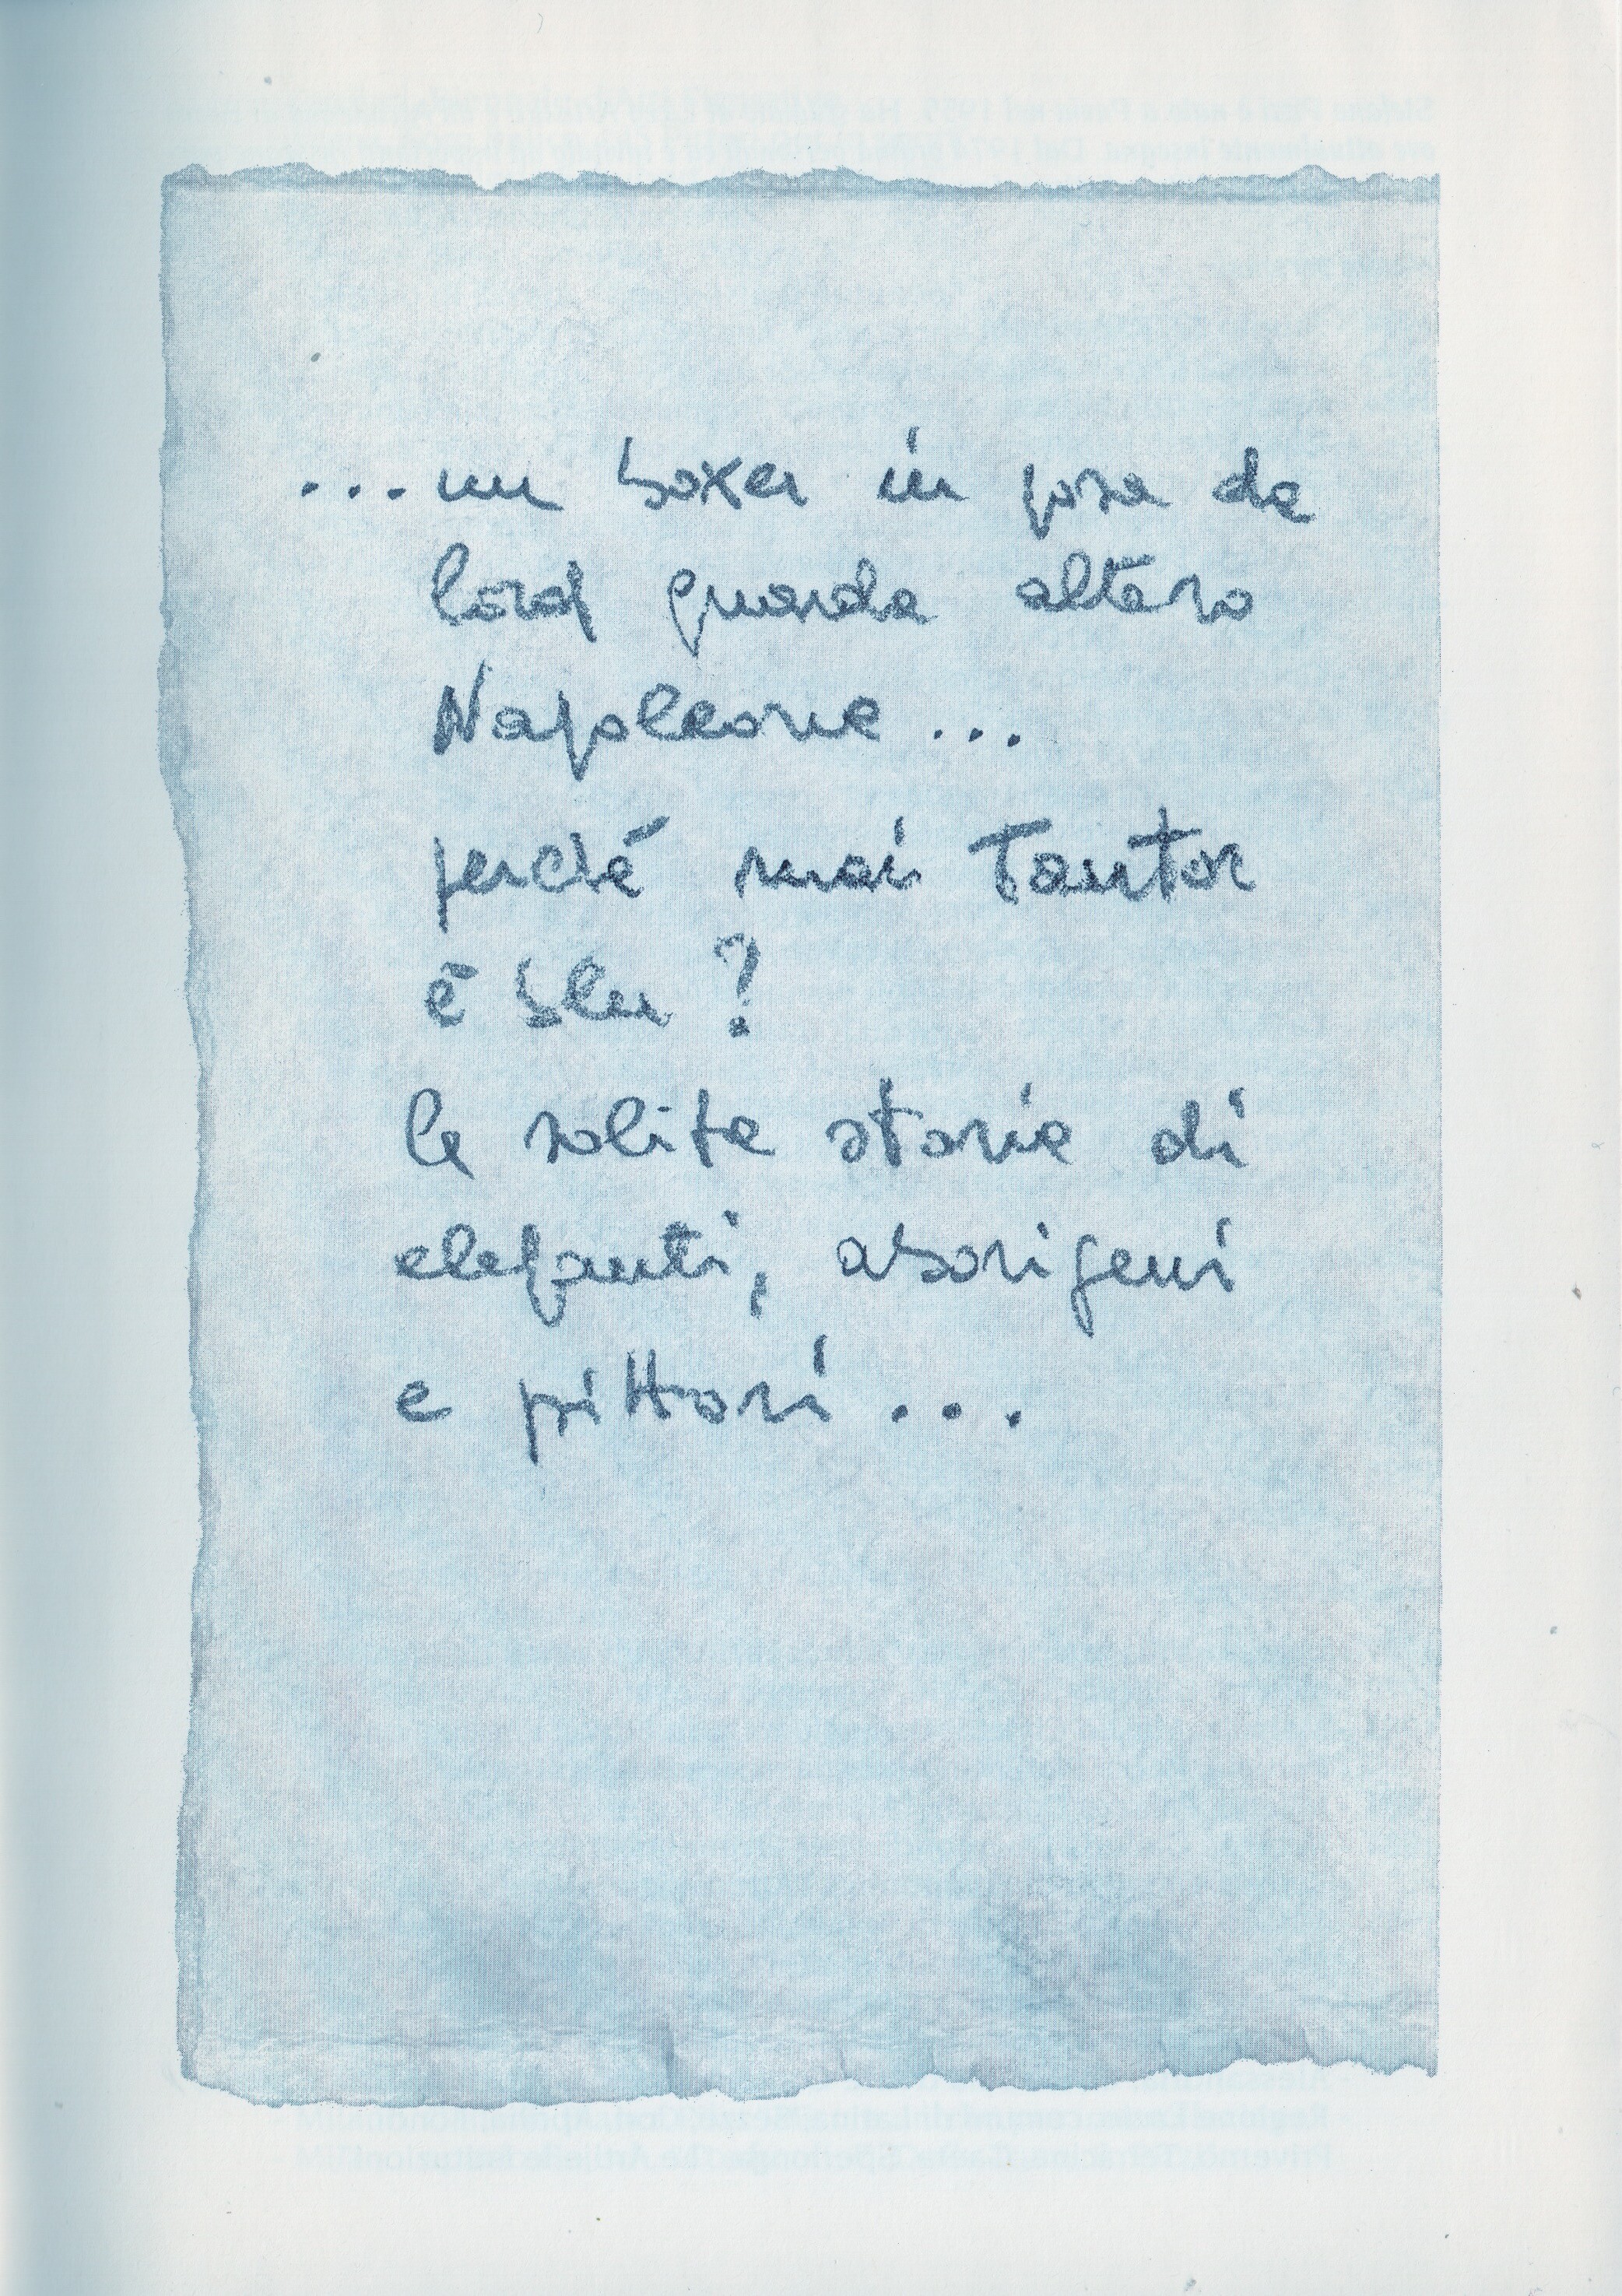 ...un boxer in posa da
lord guarda altero
Napoleone...
perché mai Tantor
è blu?
le solite storie di
elefanti, aborigeni
e pittori...